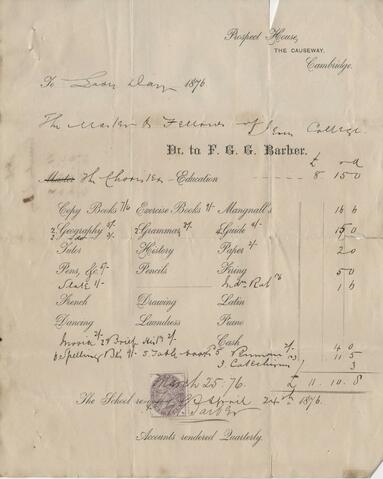 Prospect House,
THE CAUSEWAY,
Cambridge.
To Lady Day 1876
The Master & Fellows of Jesus College
Dr. to F. G. G. Barber.
£ s d
The Choristers Education 8 15 0
Copy Books 7/6 Exercise Books 9/- Mangnall's 16 6
2 Geography 2 Grammar 4 Guide 15 0
Tutor History Paper 2/- 2 0
Pens, &c 5/- Pencils Firing 5 0
Slate 1/- Ind. Rub 1 6
French Drawing Latin
Dancing Laundress Piano
2 Brief Hist Cash 4 0
Spelling Bks 5 Table books 11 5
3 Catechisms 3
£ 11. 10. 8
March 25. 76.
The School 24th 1876.
Barber
Accounts rendered Quarterly.